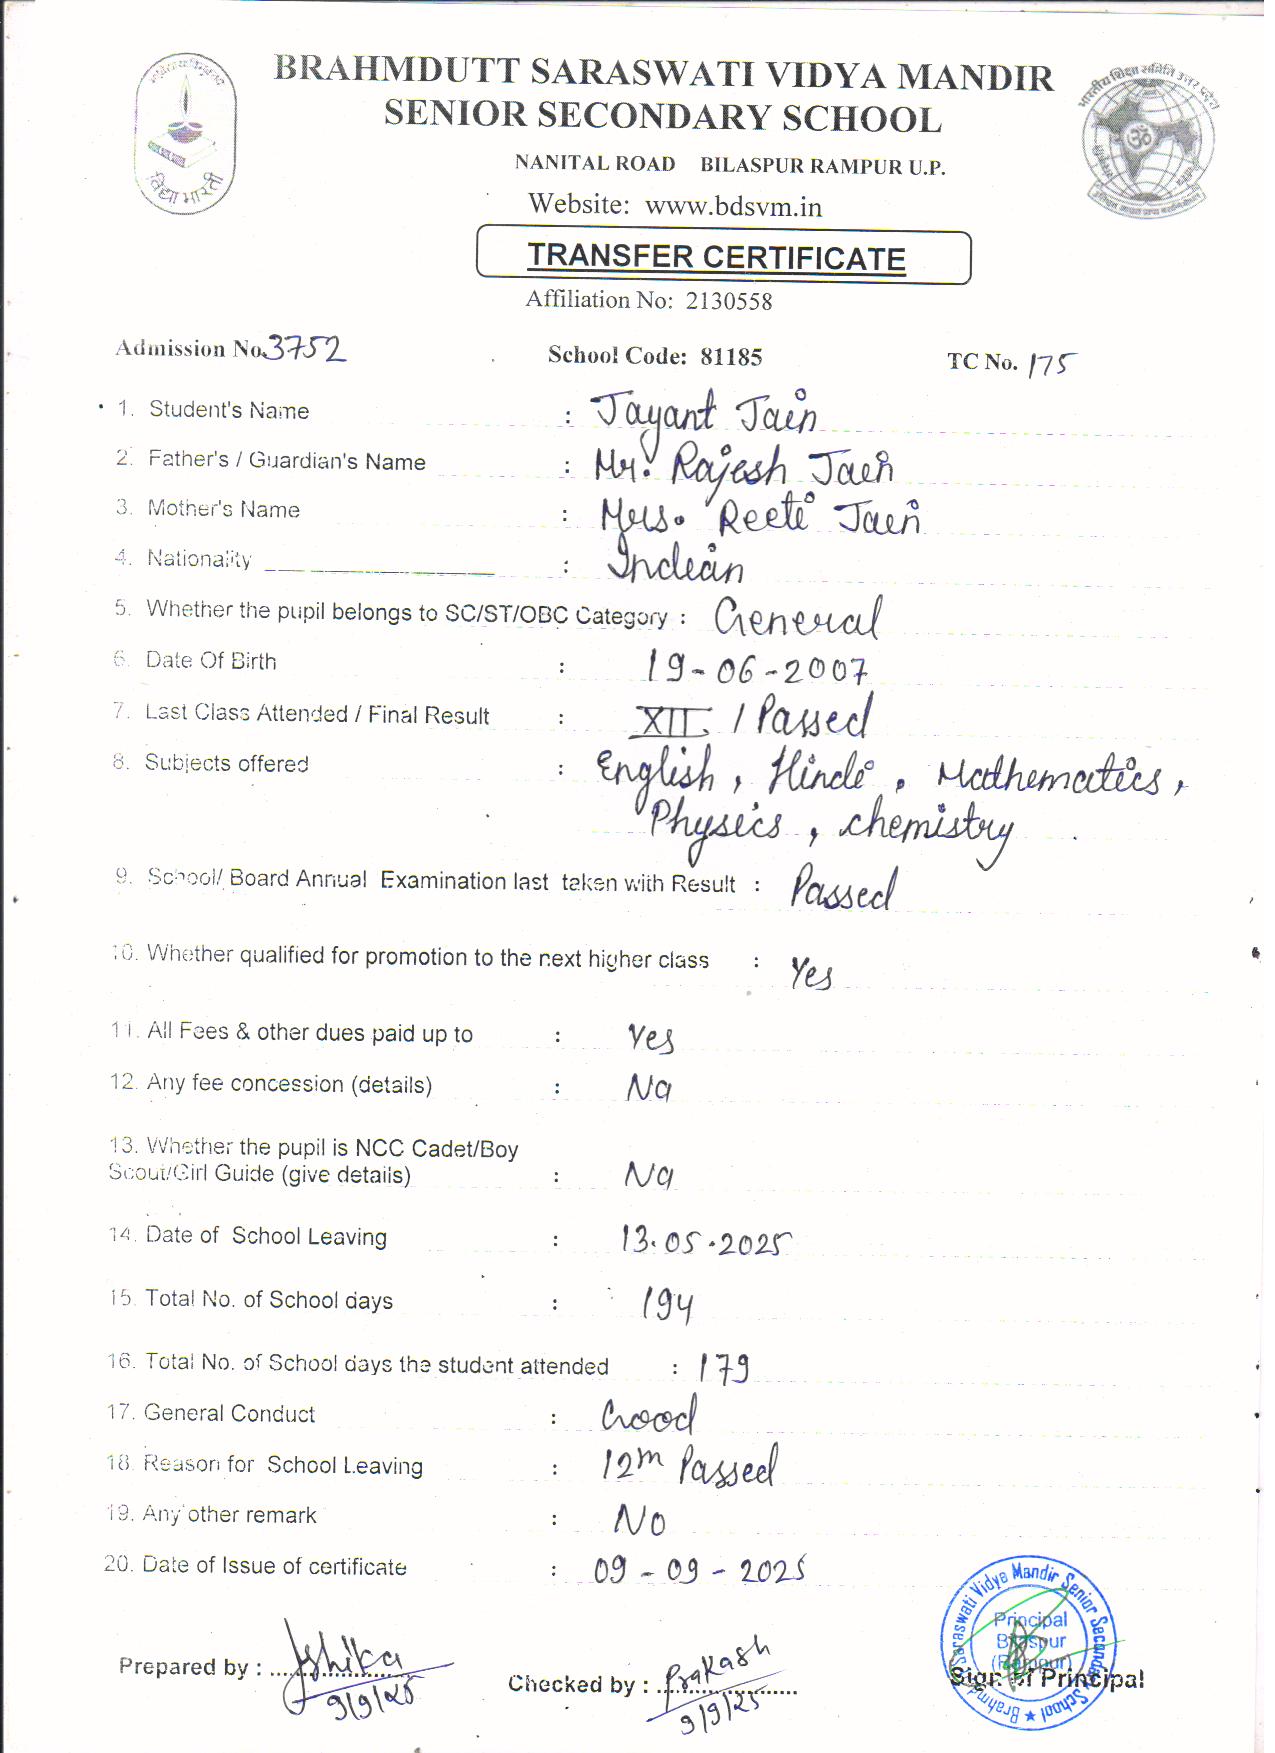 BRAHMDUTT SARASWATI VIDYA MANDIR
SENIOR SECONDARY SCHOOL
NANITAL ROAD BILASPUR RAMPUR U.P.
Website: www.bdsvm.in
विद्या भारती
भारतीय शिक्षा समिति उत्तर प्रदेश
TRANSFER CERTIFICATE
Affiliation No: 2130558
Admission No. 3752 School Code: 81185 TC No. 175
1. Student's Name : Jayant Jain
2. Father's / Guardian's Name : Mr. Rajesh Jain
3. Mother's Name : Mrs. Reeti Jain
4. Nationality : Indian
5. Whether the pupil belongs to SC/ST/OBC Category : General
6. Date Of Birth : 19-06-2007
7. Last Class Attended / Final Result : XII / Passed
8. Subjects offered : English, Hindi, Mathematics,
Physics, chemistry
9. School/ Board Annual Examination last taken with Result : Passed
10. Whether qualified for promotion to the next higher class : Yes
11. All Fees & other dues paid up to : Yes
12. Any fee concession (details) : Na
13. Whether the pupil is NCC Cadet/Boy
Scout/Girl Guide (give details) : Na
14. Date of School Leaving : 13.05.2025
15. Total No. of School days : 194
16. Total No. of School days the student attended : 179
17. General Conduct : Good
18. Reason for School Leaving : 12th Passed
19. Any other remark : No
20. Date of Issue of certificate : 09-09-2025
Prepared by : Ishika
9/9/25
Checked by : Prakash
9/9/25
Sign. of Principal
Principal
Bilaspur
(Rampur)
Saraswati Vidya Mandir Senior Secondary School ★